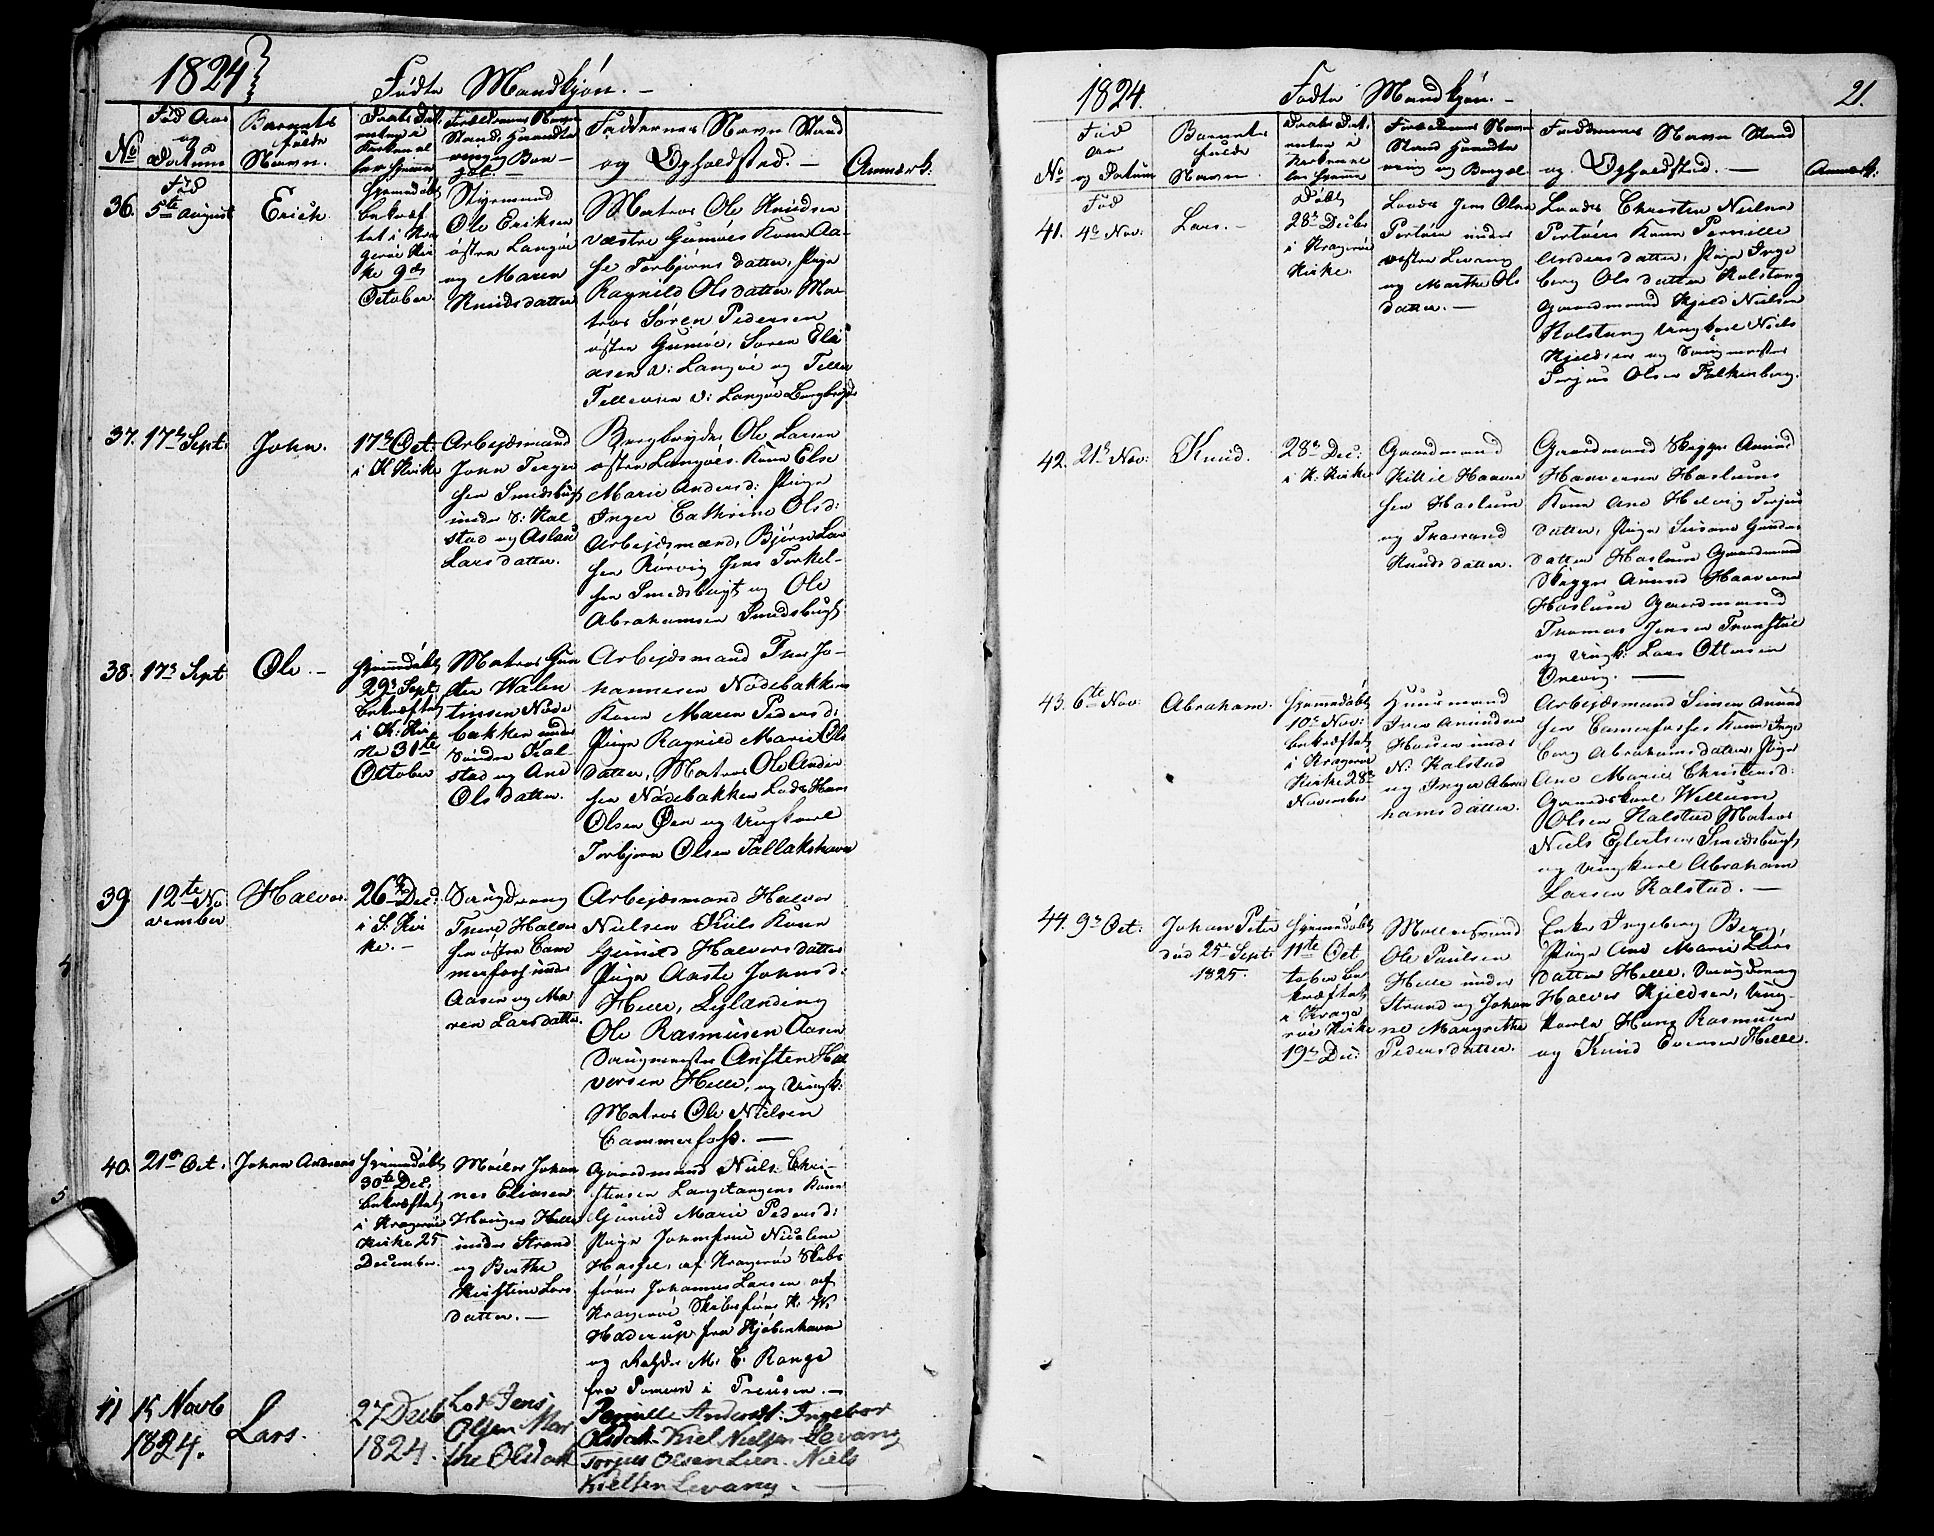 1824
Födte Mandkjön. —
No
Fød Aar og Datum
Barnets fulde Navn.
Daabs Dat: enten i Kirken el ler hjemme
Forældrenes Navn Stand, Haandte ring og Bou- pæl —
Faddernes Navn Stand og Opholdsted. —
Anmærk:
36.
Fød
5te August
Erich
hjemmdöbt
bekræf
tet i Kra
geröe Kir
ke 9de
October.
Styrmand
Ole Eriksen
östre Langöe
og Maren
Knudsdatter
Matros Ole Knudsen
væstre Gumöes Kone Aa-
se Torbjörns datter, Pige
Ragnild Olsdatter, Ma-
tros Sören Pedersen
östre Gumöe, Sören Eli
asen V: Langöe og Tellev
Tellevsen V: Langöe
37.
17de Sept:
John.
17de Oct:
i K Kirke
Arbejdsmand
John Terger
sen Smedsbugt
under S: Kal
stad og Aslau
Larsdatter.
Ole Larsen
östre Langöes Kone Else
Marie Andersd: Pige
Inger Cathrine Olsd:
Arbejdsmænd, Björn Lar
sen Rörvig Jens Terkel-
sen Smedsbugt og Ole
Abrahamsen Smedsbugt.
38.
17de Sept
Ole. —
hjemmdöbt
29de Sept
bekræftet
i K: Kir
ke 31te
October
Matros Gun
der Walen
tinsen Nöde
bakken under
Söndre Kal-
stad og Ane
Olsdatter.
Arbejdsmand Iver Jo-
hannesen Nödebakken
Kone Maren Pedersd:
Pige Ragnild Marie Ols
datter, Matros Ole Ander
sen Nödebakken Lods Hans
Olsen Öen og Ungkarl
Torbjörn Olsen Tallakshavn
39
12te No
vember
Halvor.
26de Dec:
i S. Kir
ke. —
Saugdreng
Iver Halvor
sen östre Cam
merfoss under
Aasen og Ma
ren Larsdatter.
Arbejdsmand Halvor
Nielsen Kiils Kone
Gunild Halvorsdatter
Pige Aaste Johnsd:
Helle, Lylænding
Ole Rasmusen Aasen
Saugmester Ansten Hal
vorsen Helle, og Ungk:
Matros Ole Nielsen
Cammerfoss. —
40.
21de Oct.
Johan Andreas
hjemmdöbt
30te Oct.
bekræftet
i Krageröe
Kirke 25
December.
Möller Johan
nes Eliasen
Hougen Helle
under Strand
og Berthe
Kirstine Lars
datter. —
Gaardmand Niels Chri-
stensen Langetangens Kone
Gunild Marie Pedersd:
Pige Johmfrue Nicoline
Hassel, af Krageröe Skibs
förer Johannes Larsen af
Krageröe Skibsförer K. W.
Haderup fra Kjöbenhavn
og M. C. Range
fra Pomern i Preusen. —
41
15 Novb
1824.
Lars.
27 Decb
1824.
Lod Jens
Olsen Mar
the Olsdatt
Pernille Andersdt: Ingebor
Olsdatt Kiel Nielsen Levang
Torjus Olsen Lien. Niels
Kielsen Levang. —
1824.
Fødte Mandkjön. —
21.
No
Fød Aar og Datum
Barnets fulde Navn
Daabs Dat: enten i Kirken el ler hjemme
Forældrenes Navn Stand Haandte ring og Boepæl
Faddernes Navn Stand og Opholdsted. —
Anmærk:
41.
Fød
4de Nov:
Lars. —
Döbt
28de Decbr
i Krageröe
Kirke.
Lods Jens Olsen
Portöen under
vestre Levang
og Marthe Ols
datter. —
Lods Christen Nielsen
Portöens Kone Pernille
Andersdatter, Pige Inge
borg Olsdatter Kalstang
Gaardmand Kjeld Nielsen
Kalstang Ungkarl Niels
Kjeldsen og Saugmester
Torjus Olsen Falkenberg.
42.
21de Nov:
Knud.
28de Dec:
i K. Kirke
Gaardmand
Kittil Haavor
sen Haslum
og Tharrand
Knudsdatter.
Gaardmand Skygge Amund
Haavorsen Haslums
Kone Ane Helvig Torjus
datter, Pige Susane Gunder
datter Haslum Gaardmand
Skygge Amund Haavorsen
Haslum Gaardmand
Thomas Jensen Transtöl
og Ungk: Lars Ottersen
43.
6te Nov:
Abraham.
hjemmdöbt
10de Nov:
bekræftet
i Krageröe
Kirke 28de
November
Huusmand
Iver Amundsen
Housen under
N. Kalstad
og Inger Abra
hamsdatter.
Arbejdsmand Simen Amund
sen Camerfosses Kone Inge
borg Abrahamsdatter, Pige
Ane Marie Christensd:
Gaardskarl Wellum
Olsen Kalstad Matros
Niels Ejlertsen Smedsbugt
og Ungkarl Abraham
Larsen Kalstad. —
44.
9de Oct:
Johan Peter
död 25de Sept:
1825.
hjemmdöbt
11te Oct
tober be
kræftet
i Krage
röe Kirke
19de Dec:
Möllersvend
Ole Paulsen
Helle under
Strand og Johan
ne Margrethe
Pedersdatter.
Enke Ingeborg Berg,
Pige Ane Marie Lars
datter Helle, Saugdreng
Halvor Kjeldsen, Ung-
karle Hans Rasmusen
og Knud Evensen Helle.